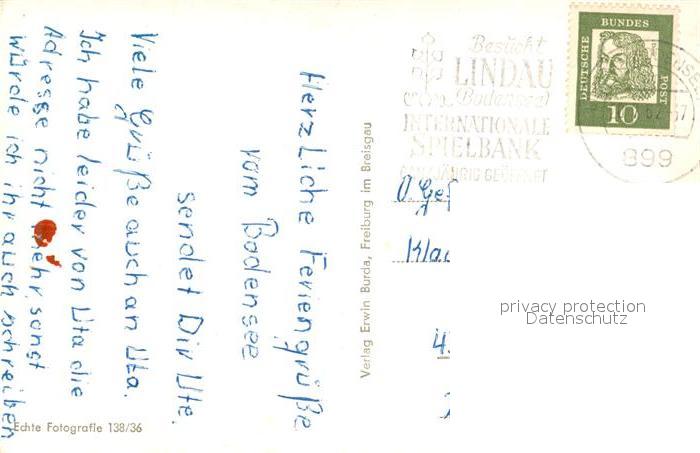 Herzliche Feriengrüße
vom Bodensee
sendet Dir Ute.
Viele Grüße auch an Uta.
Ich habe leider von Uta die
Adresse nicht mehr, sonst
würde ich ihr auch schreiben
Echte Fotografie 138/36
Verlag Erwin Burda, Freiburg im Breisgau
Besucht
LINDAU
Bodensee
INTERNATIONALE
SPIELBANK
GANZJÄHRIG GEÖFFNET
DEUTSCHE
BUNDES
POST
10
899
privacy protection
Datenschutz